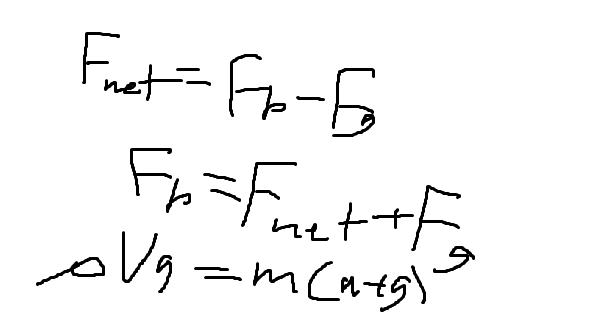 F_net = F_b - F_g
F_b = F_net + F_g
ρVg = m(a+g)